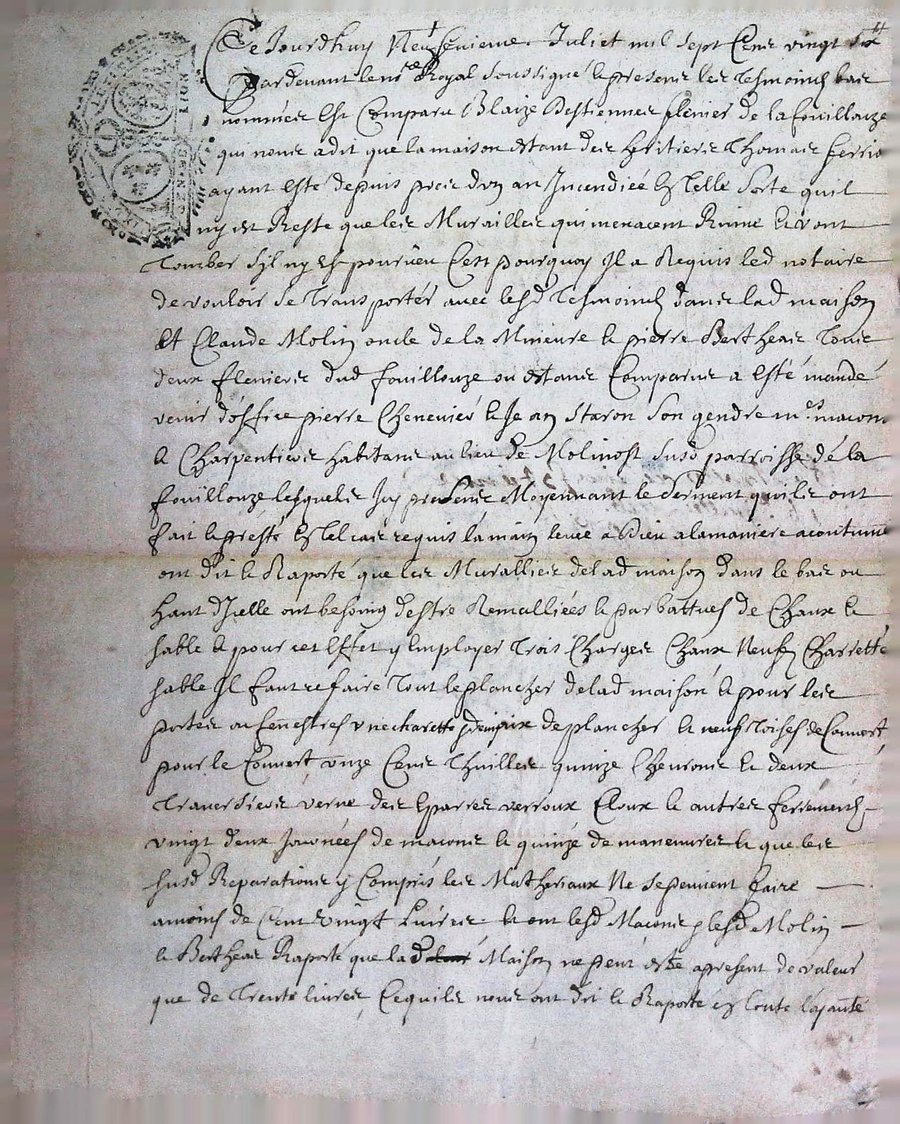 Ce Jourdhuy Neufvieme Juliet mil sept Cens vingt six
Pardevant le nre Royal soussigné & presens les Tesmoins bas
nommés Est Comparu Blaize Destienne de la fouillouze
qui nous a dit que la maison Estant des heritiers Thomas ferrio
ayant Esté depuis pres d'un an Incendiée En telle sorte quil
ny est Resté que les Murailles qui menacent Ruine & vont
Tomber Sy ny Est pourveu Cest pourquoy Il a Requis led notaire
de vouloir se Transporter avec lesd Tesmoins dans lad maison
Et Claude Molin oncle de la Mineure & pierre Bertheas Tous
deux dud fouillouze ou Estans Comparus a Esté mandé
venir d'office pierre Chenevier & Jean Staron Son gendre mes macons
& Charpentiers habitans au lieu de Molinost susd parroisse de la
fouillouze lesquels Icy presens Moyennant le Serment quils ont
fait & presté En tel cas requis la main levée a Dieu a la maniere acoutumé
ont dit & Raporté que les Murallies de lad maison dans le bas ou
haut d'Icelle ont besoing d'estre Remalliées & parbattues de Chaux &
sable & pour cet Effet y Employer Trois Charges Chaux Neuf Charrette
sable Il faut refaire Tout le plancher de lad maison & pour les
portes ou fenestres une charette de plancher & neuf Toises de Couvert
pour le Couvert onze Cens Thuilles quinze Chevrons & deux
Traversiers verne des Eparres verroux Cloux & autres ferrements
vingt deux Journées de macons & quinze de maneuvres & que les
susd Reparations y Compris les Matheriaux Ne se peuvent faire
a moins de Cent vingt Livres & ont lesd Macons & lesd Molin
& Bertheas Raporté que lad Maison ne peut estre apresent de valeur
que de Trente livres Cequils nous ont dit & Raporté